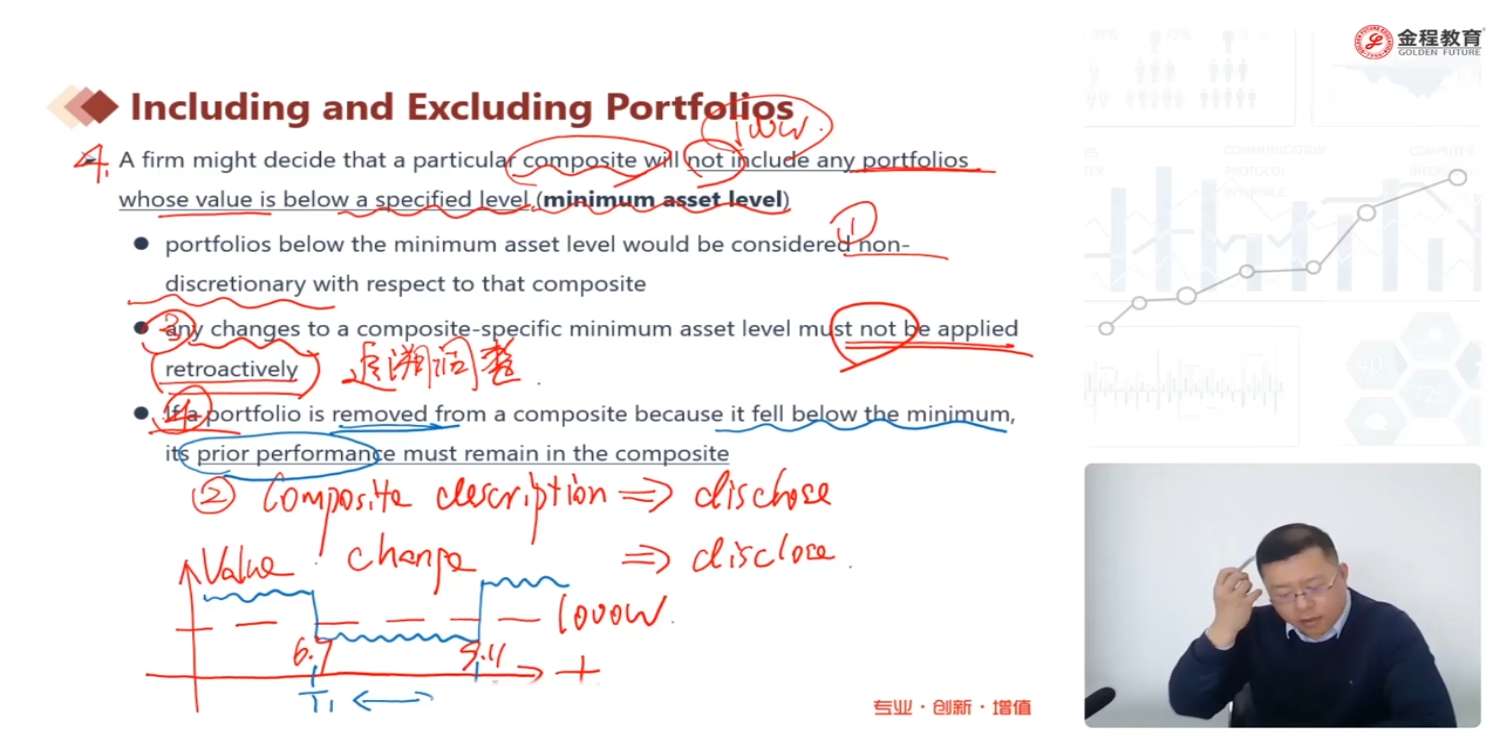 金程教育
GOLDEN FUTURE
Including and Excluding Portfolios
100W.
4. A firm might decide that a particular composite will not include any portfolios
whose value is below a specified level (minimum asset level)
①
● portfolios below the minimum asset level would be considered non-
discretionary with respect to that composite
③
● any changes to a composite-specific minimum asset level must not be applied
retroactively 追溯调整.
④
● If a portfolio is removed from a composite because it fell below the minimum,
its prior performance must remain in the composite
② Composite description ⇒ disclose
change ⇒ disclose.
Value
1000W.
6.7
T1
专业·创新·增值